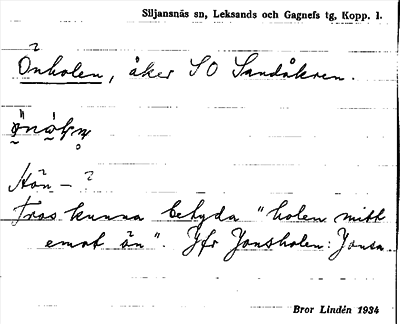 Siljansnäs sn, Leksands och Gagnefs tg, Kopp. l.
Önholen, åker SO Sandåkren.
Hön - ?
Tros kunna betyda "holen mitt
emot ön". Jfr Jonsholen: Jonsa
Bror Lindén 1934